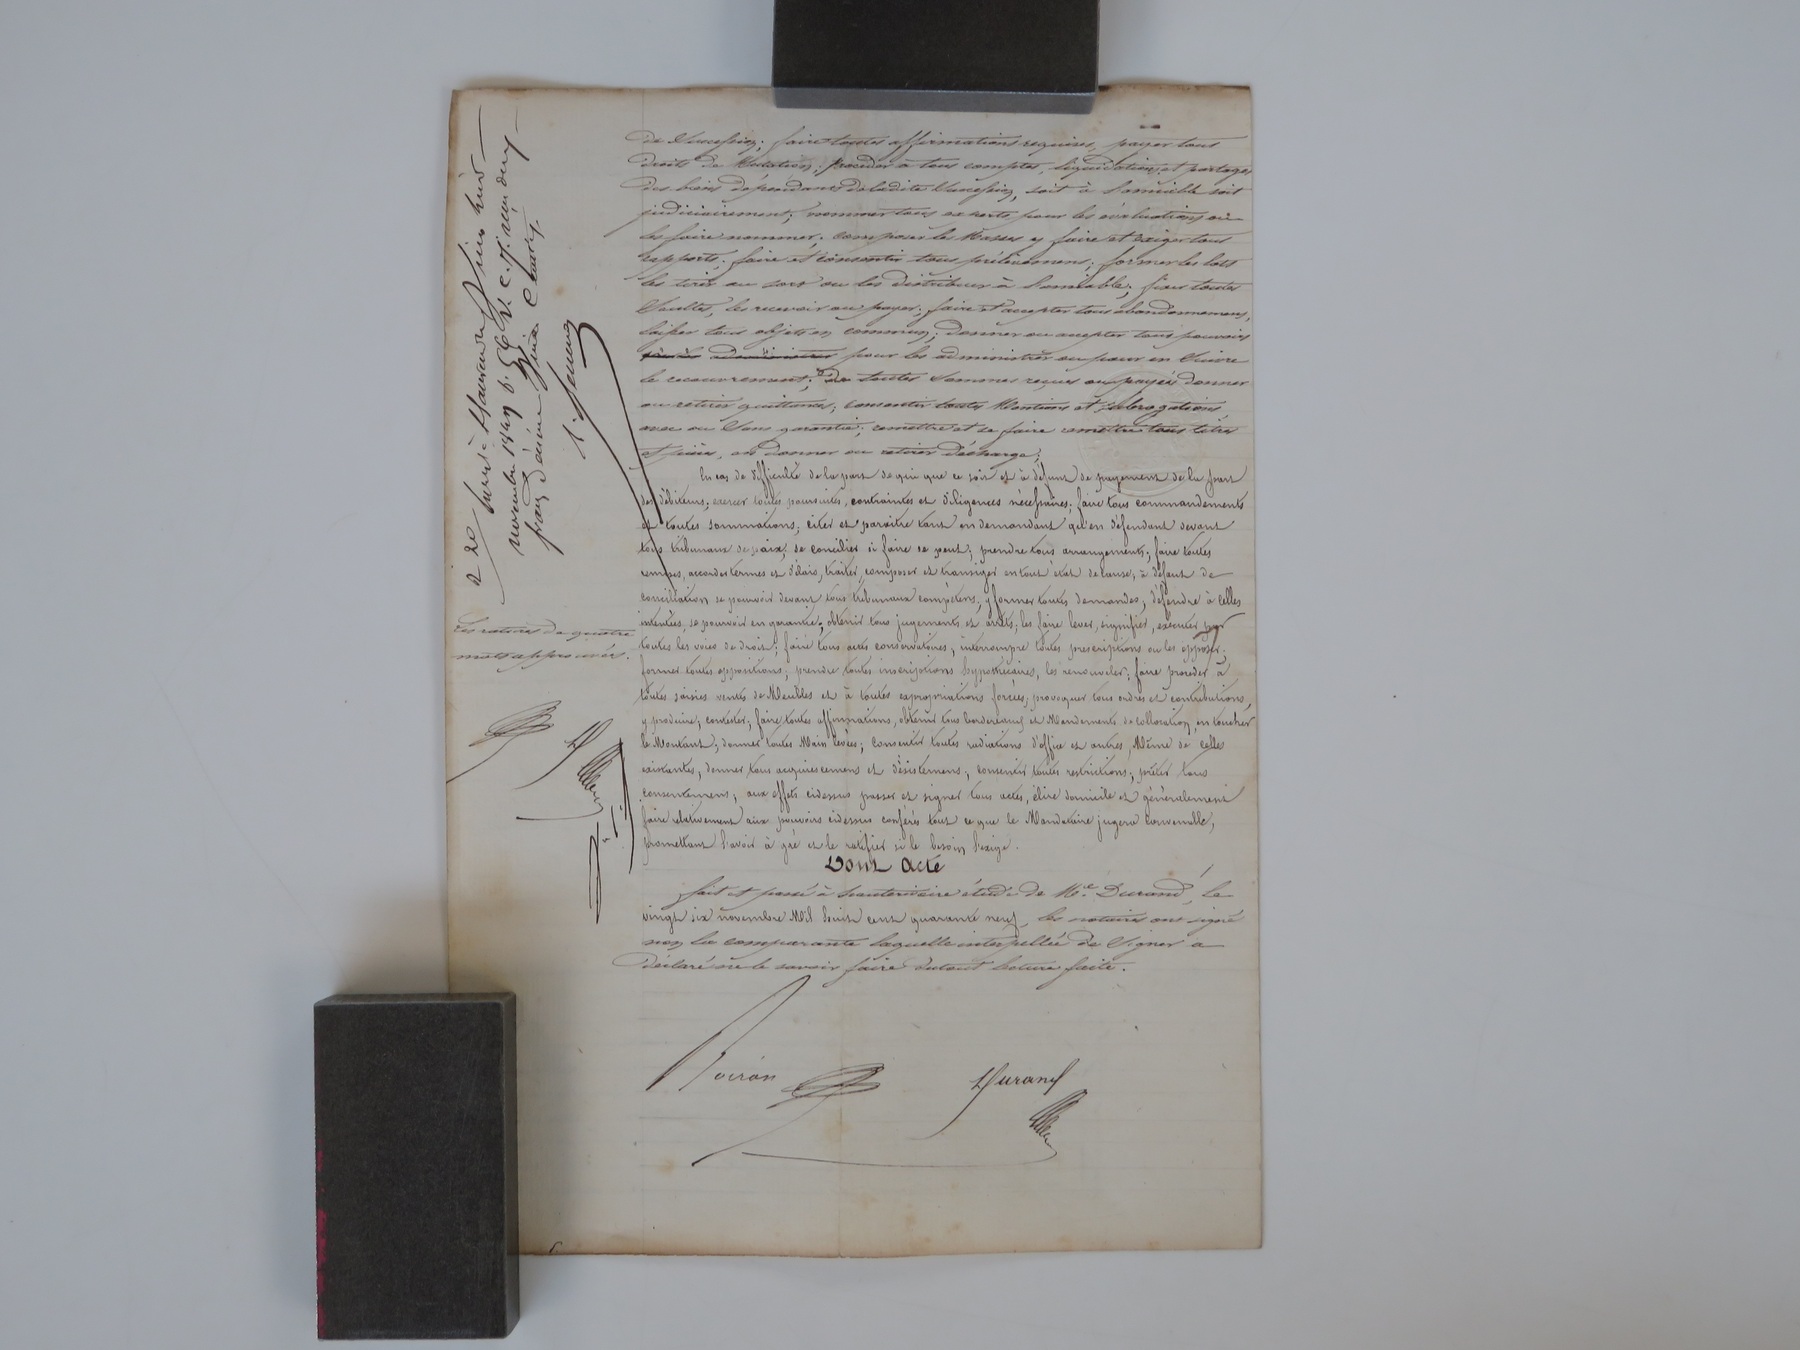 de Succession; faire toutes affirmations requises, payer tous
droits de Mutation; procéder à tous comptes, liquidations et partages
des biens dépendant de ladite Succession, soit à l'amiable soit
judiciairement; nommer tous experts pour les évaluations ou
les faire nommer; composer les Masses y faire et exiger tous
rapports; faire et consentir tous prélèvemens; former les lots
les tirer au sort ou les distribuer à l'amiable; fixer toutes
Soultes, les recevoir ou payer; faire et accepter tous abandonnemens,
laisser tous objets en commun; donner ou accepter tous pouvoirs
pour les administrer ou pour en Suivre
le recouvrement; de toutes Sommes reçues ou payées donner
ou retirer quittances; consentir toutes Mentions et subrogations
avec ou Sans garantie; remettre et se faire remettre tous titres
et pièces, en donner ou retirer décharge;
En cas de difficulté de la part de qui que ce soit et à défaut de payement de la part
des débiteurs; exercer toutes poursuites, contraintes et diligences nécessaires; faire tous commandements
et toutes sommations; citer et paraître tant en demandant qu'en défendant devant
tous tribunaux de paix; se concilier si faire se peut; prendre tous arrangements; faire toutes
remises, accorder termes et délais, traiter, composer et transiger en tout état de cause; à défaut de
conciliation se pourvoir devant tous tribunaux compétens; y former toutes demandes; défendre à celles
intentées, se pourvoir en garantie; obtenir tous jugements et arrêts; les faire lever, signifier, exécuter par
toutes les voies de droit; faire tous actes conservatoires, interrompre toutes prescriptions ou les opposer.
former toutes oppositions; prendre toutes inscriptions hypothécaires, les renouveler; faire procéder à
toutes saisies ventes de Meubles et à toutes expropriations forcées; provoquer tous ordres et contributions,
y produire; contester; faire toutes affirmations, obtenir tous bordereaux et Mandements de collocation, en toucher
le Montant; donner toutes Main levées; consentir toutes radiations d'office et autres, Même de celle
existantes, donner tous acquiescemens et désistemens; consentir toutes restrictions; prêter tous
consentemens; aux effets cidessus passer et signer tous actes, élire domicile et généralement
faire relativement aux pouvoirs cidessus conférés tout ce que le Mandataire jugera convenable,
promettant l'avoir à gré et le ratifier si le besoin l'exige.
Dont Acte
fait et passé à étude de Me. Durand, le
vingt six novembre Mil huit cent quarante neuf, les notaires ont signé
non la comparante laquelle interpellée de Signer a
déclaré ne le savoir faire dutout lecture faite.
Voiron Durand
Les ratures de quatre
mots approuvées.
novembre 1849